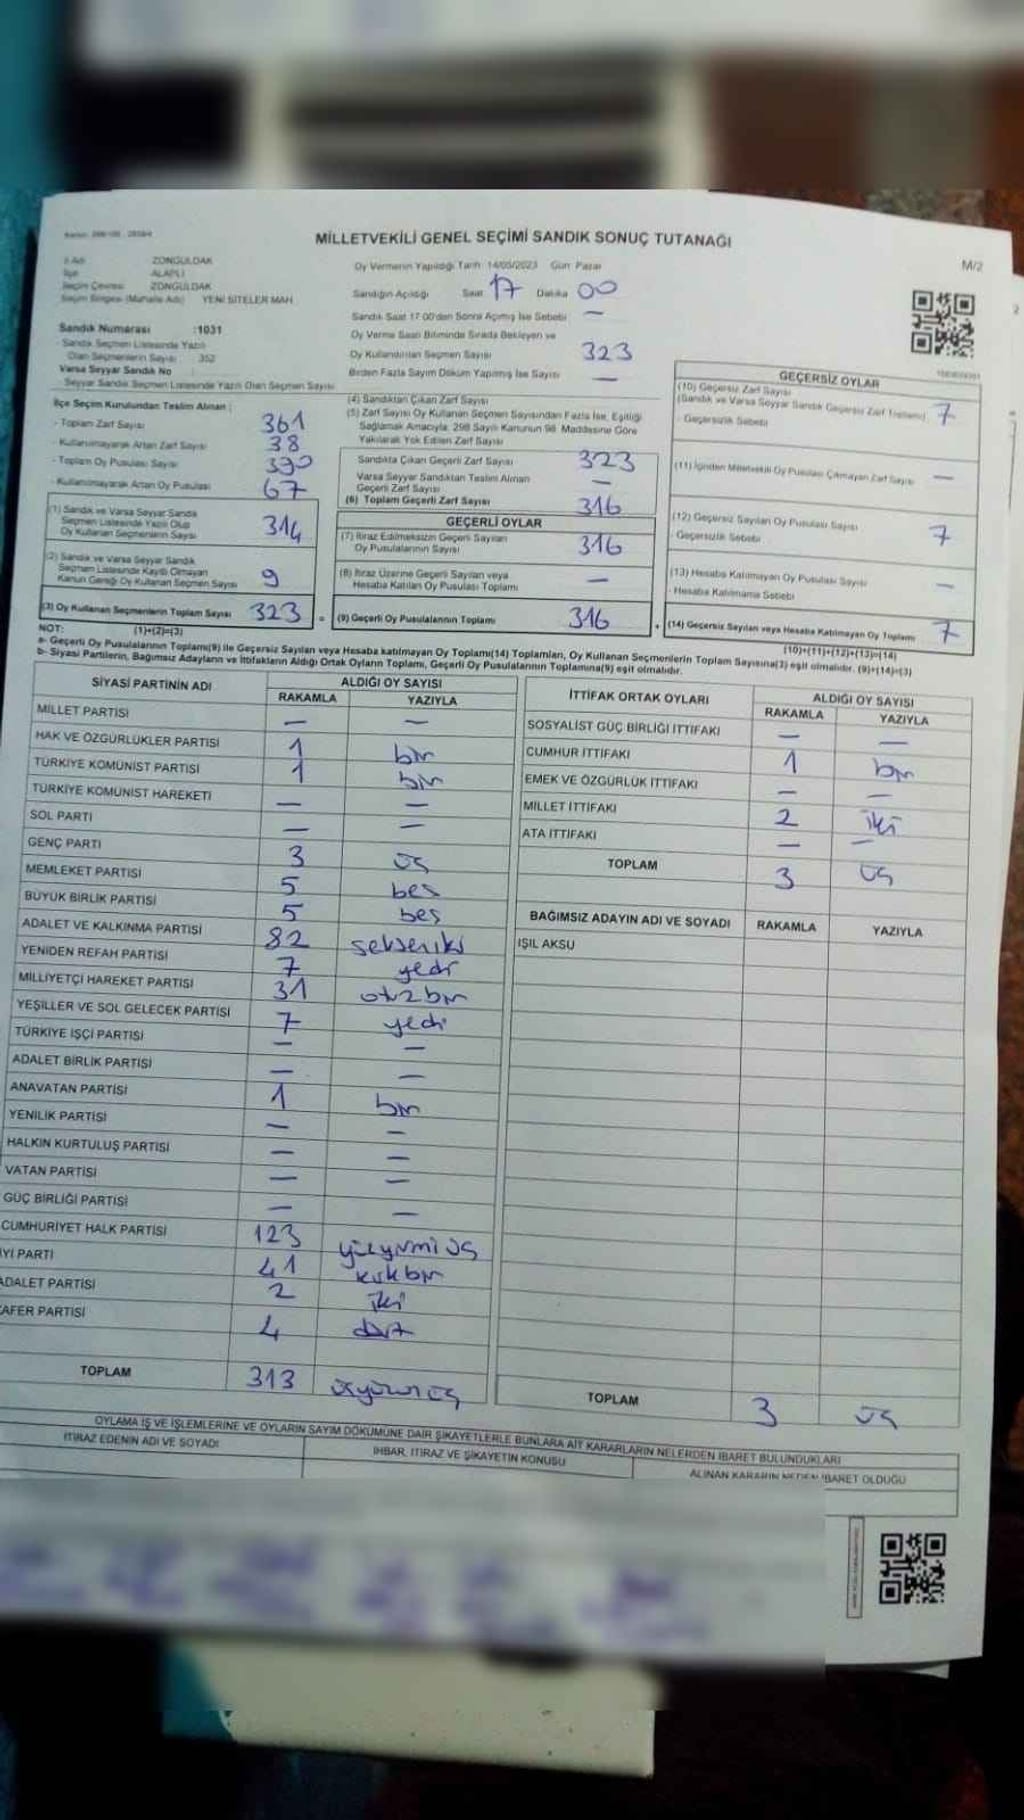 MİLLETVEKİLİ GENEL SEÇİMİ SANDIK SONUÇ TUTANAĞI
M/2
İl Adı ZONGULDAK
İlçe ALAPLI
Seçim Çevresi ZONGULDAK
Seçim Bölgesi (Mahalle Adı) YENİ SİTELER MAH
Sandık Numarası :1031
Sandık Seçmen Listesinde Yazılı
Olan Seçmenlerin Sayısı 352
Varsa Seyyar Sandık No
Seyyar Sandık Seçmen Listesinde Yazılı Olan Seçmen Sayısı
Oy Vermenin Yapıldığı Tarih 14/05/2023 Gün: Pazar
Sandığın Açıldığı Saat 17 Dakika 00
Sandık Saat 17.00'den Sonra Açımış İse Sebebi —
Oy Verme Saati Bitiminde Sırada Bekleyen ve
Oy Kullandırılan Seçmen Sayısı 323
Birden Fazla Sayım Döküm Yapılmış İse Sayısı —
İlçe Seçim Kurulundan Teslim Alınan :
- Toplam Zarf Sayısı 361
- Kullanılmayarak Artan Zarf Sayısı 38
- Toplam Oy Pusulası Sayısı 390
- Kullanılmayarak Artan Oy Pusulası 67
(1) Sandık ve Varsa Seyyar Sandık
Seçmen Listesinde Yazılı Olup
Oy Kullanan Seçmenlerin Sayısı 314
(2) Sandık ve Varsa Seyyar Sandık
Seçmen Listesinde Kayıtlı Olmayan
Kanun Gereği Oy Kullanan Seçmen Sayısı 9
(3) Oy Kullanan Seçmenlerin Toplam Sayısı 323
(4) Sandıktan Çıkan Zarf Sayısı
(5) Zarf Sayısı Oy Kullanan Seçmen Sayısından Fazla İse, Eşitliği
Sağlamak Amacıyla, 298 Sayılı Kanunun 98. Maddesine Göre
Yakılarak Yok Edilen Zarf Sayısı
Sandıkta Çıkan Geçerli Zarf Sayısı 323
Varsa Seyyar Sandıktan Teslim Alınan
Geçerli Zarf Sayısı —
(6) Toplam Geçerli Zarf Sayısı 316
GEÇERLİ OYLAR
(7) İtiraz Edilmeksizin Geçerli Sayılan
Oy Pusulalarının Sayısı 316
(8) İtiraz Üzerine Geçerli Sayılan veya
Hesaba Katılan Oy Pusulası Toplamı —
= (9) Geçerli Oy Pusulalarının Toplamı 316
GEÇERSİZ OYLAR
(10) Geçersiz Zarf Sayısı
(Sandık ve Varsa Seyyar Sandık Geçersiz Zarf Toplamı) 7
- Geçersizlik Sebebi
(11) İçinden Milletvekili Oy Pusulası Çıkmayan Zarf Sayısı —
(12) Geçersiz Sayılan Oy Pusulası Sayısı 7
- Geçersizlik Sebebi
(13) Hesaba Katılmayan Oy Pusulası Sayısı —
- Hesaba Katılmama Sebebi
+ (14) Geçersiz Sayılan veya Hesaba Katılmayan Oy Toplamı 7
NOT: (1)+(2)=(3) (10)+(11)+(12)+(13)=(14)
a- Geçerli Oy Pusulalarının Toplamı(9) ile Geçersiz Sayılan veya Hesaba Katılmayan Oy Toplamı(14) Toplamları, Oy Kullanan Seçmenlerin Toplam Sayısına(3) eşit olmalıdır. (9)+(14)=(3)
b- Siyasi Partilerin, Bağımsız Adayların ve İttifakların Aldığı Ortak Oyların Toplamı, Geçerli Oy Pusulalarının Toplamına(9) eşit olmalıdır.
SİYASİ PARTİNİN ADI ALDIĞI OY SAYISI
RAKAMLA YAZIYLA
MİLLET PARTİSİ — —
HAK VE ÖZGÜRLÜKLER PARTİSİ 1 bir
TÜRKİYE KOMÜNİST PARTİSİ 1 bir
TÜRKİYE KOMÜNİST HAREKETİ — —
SOL PARTİ — —
GENÇ PARTİ 3 üç
MEMLEKET PARTİSİ 5 beş
BÜYÜK BİRLİK PARTİSİ 5 beş
ADALET VE KALKINMA PARTİSİ 82 sekseniki
YENİDEN REFAH PARTİSİ 7 yedi
MİLLİYETÇİ HAREKET PARTİSİ 31 otuzbir
YEŞİLLER VE SOL GELECEK PARTİSİ 7 yedi
TÜRKİYE İŞÇİ PARTİSİ — —
ADALET BİRLİK PARTİSİ — —
ANAVATAN PARTİSİ 1 bir
YENİLİK PARTİSİ — —
HALKIN KURTULUŞ PARTİSİ — —
VATAN PARTİSİ — —
GÜÇ BİRLİĞİ PARTİSİ — —
CUMHURİYET HALK PARTİSİ 123 yüzyirmi üç
İYİ PARTİ 41 kırkbir
ADALET PARTİSİ 2 iki
AFER PARTİSİ 4 dört
TOPLAM 313 üçyüzonüç
İTTİFAK ORTAK OYLARI ALDIĞI OY SAYISI
RAKAMLA YAZIYLA
SOSYALİST GÜÇ BİRLİĞİ İTTİFAKI — —
CUMHUR İTTİFAKI 1 bir
EMEK VE ÖZGÜRLÜK İTTİFAKI — —
MİLLET İTTİFAKI 2 iki
ATA İTTİFAKI — —
TOPLAM 3 üç
BAĞIMSIZ ADAYIN ADI VE SOYADI RAKAMLA YAZIYLA
IŞIL AKSU
TOPLAM 3 üç
OYLAMA İŞ VE İŞLEMLERİNE VE OYLARIN SAYIM DÖKÜMÜNE DAİR ŞİKAYETLERLE BUNLARA AİT KARARLARIN NELERDEN İBARET BULUNDUKLARI
İTİRAZ EDENİN ADI VE SOYADI
İHBAR, İTİRAZ VE ŞİKAYETİN KONUSU
ALINAN KARARIN NEDEN İBARET OLDUĞU